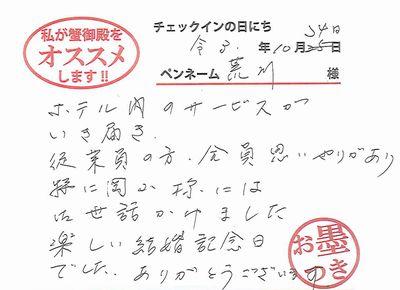 私が蟹御殿を
オススメ
します!!
チェックインの日にち
令3. 年10月25日
24日
ペンネーム 荒川 様
ホテル内のサービスが
いき届き.
従業員の方. 全員思いやりがあり
特に岡小様には
お世話かけました
楽しい結婚記念日
でした. ありがとうございます
お墨つき